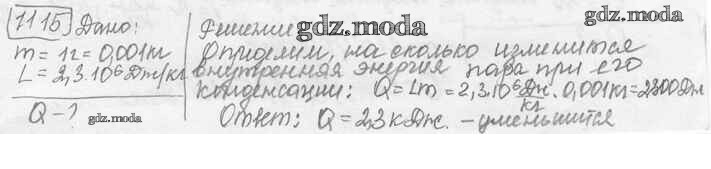 gdz.moda
1115 Дано: Решение
gdz.moda
m = 1г = 0,001 кг Определим, на сколько изменится
L = 2,3·10⁶ Дж/кг внутренняя энергия пара при его
конденсации: Q = Lm = 2,3·10⁶ Дж/кг · 0,001кг = 2300Дж
Q - ? gdz.moda
Ответ: Q = 2,3 кДж. - уменьшится